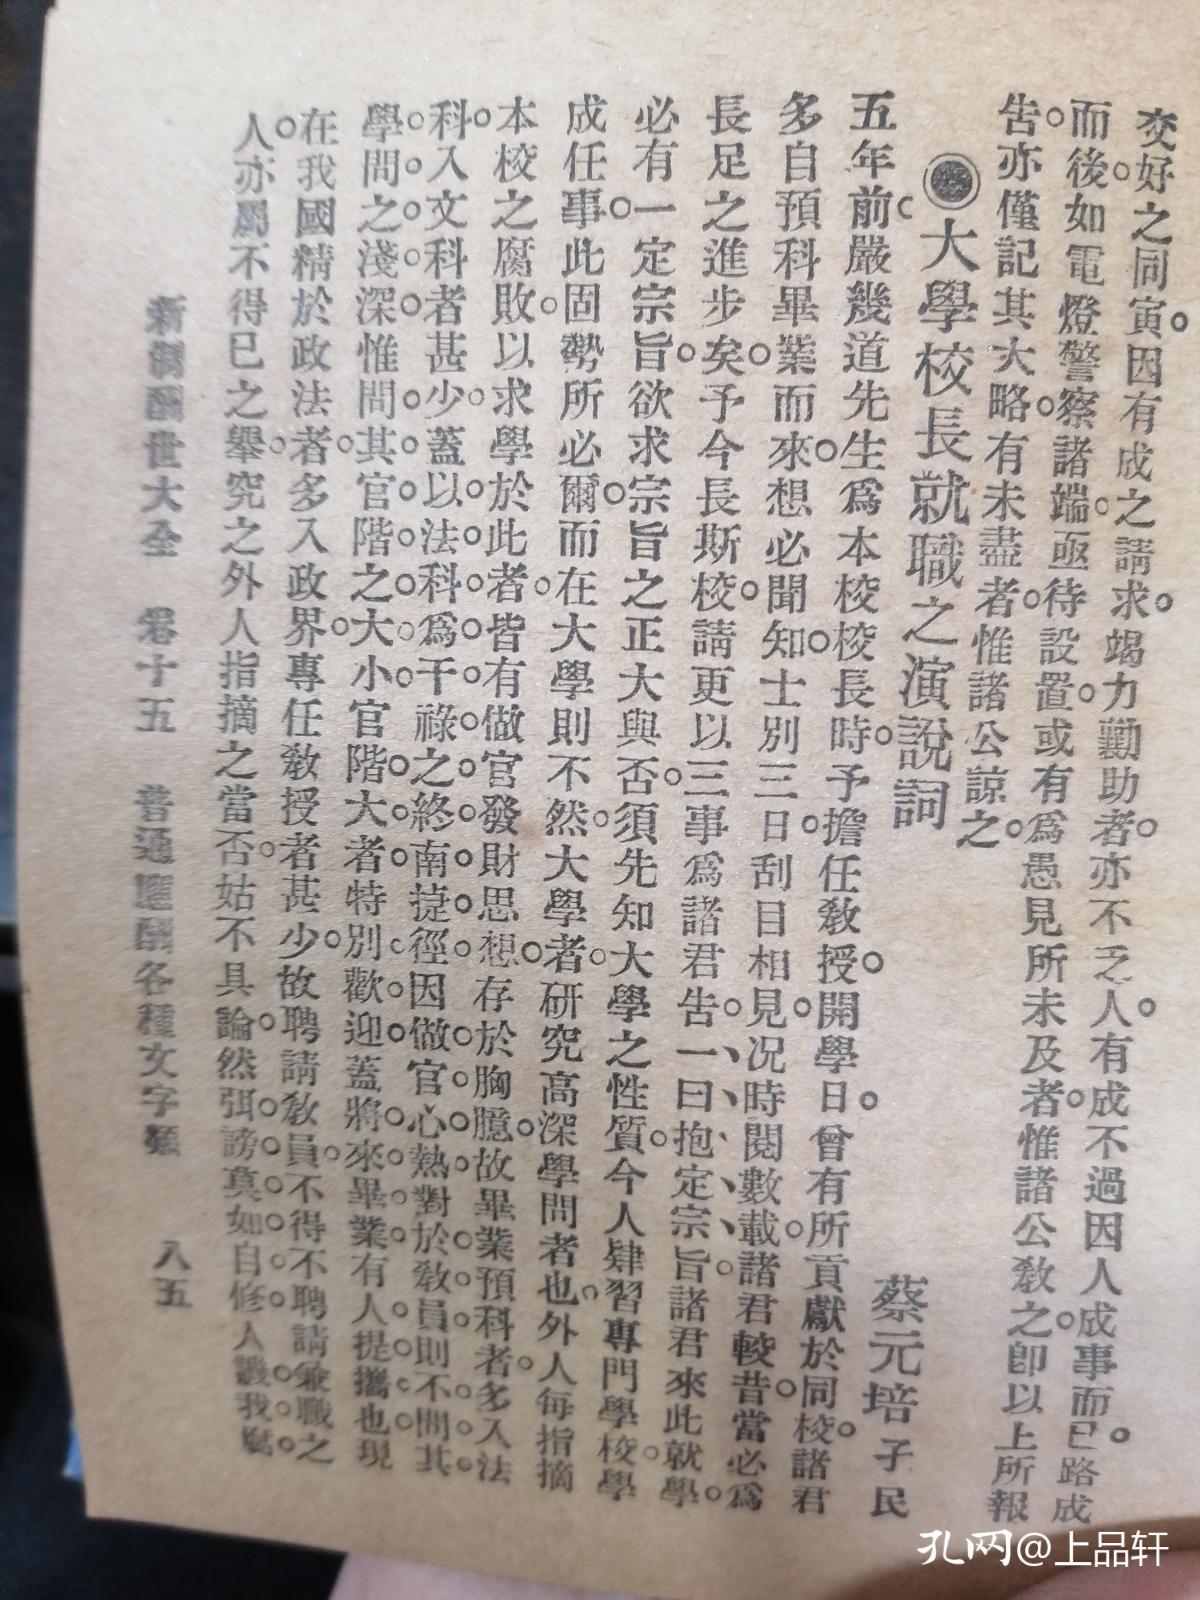 交好之同寅。因有成之請求。竭力勷助者。亦不乏人。有成不過因人成事而已。路成
而後。如電燈警察諸端。亟待設置。或有爲愚見所未及者。惟諸公敎之。卽以上所報
告。亦僅記其大略。有未盡者。惟諸公諒之。
◉大學校長就職之演說詞
蔡元培 孑民
五年前。嚴幾道先生爲本校校長時。予擔任敎授。開學日。曾有所貢獻於同校。諸君
多自預科畢業而來。想必聞知。士別三日。刮目相見。况時閱數載。諸君較昔。當必爲
長足之進步矣。予今長斯校。請更以三事爲諸君告。一曰抱定宗旨。諸君來此就學。
必有一定宗旨。欲求宗旨之正大與否。須先知大學之性質。今人肄習專門學校。學
成任事。此固勢所必爾。而在大學則不然。大學者。研究高深學問者也。外人每指摘
本校之腐敗。以求學於此者。皆有做官發財思想。存於胸臆。故畢業預科者。多入法
科。入文科者甚少。蓋以法科爲干祿之終南捷徑。因做官心熱。對於敎員。則不問其
學問之淺深。惟問其官階之大小。官階大者。特別歡迎。蓋將來畢業。有人提攜也。現
在我國精於政法者。多入政界。專任敎授者甚少。故聘請敎員。不得不聘請兼職之
人。亦屬不得已之舉。究之外人指摘之當否。姑不具論。然弭謗莫如自修。人譏我腐。
新制酬世大全 卷十五 普通應酬各種文字類 八五
孔网@上品轩